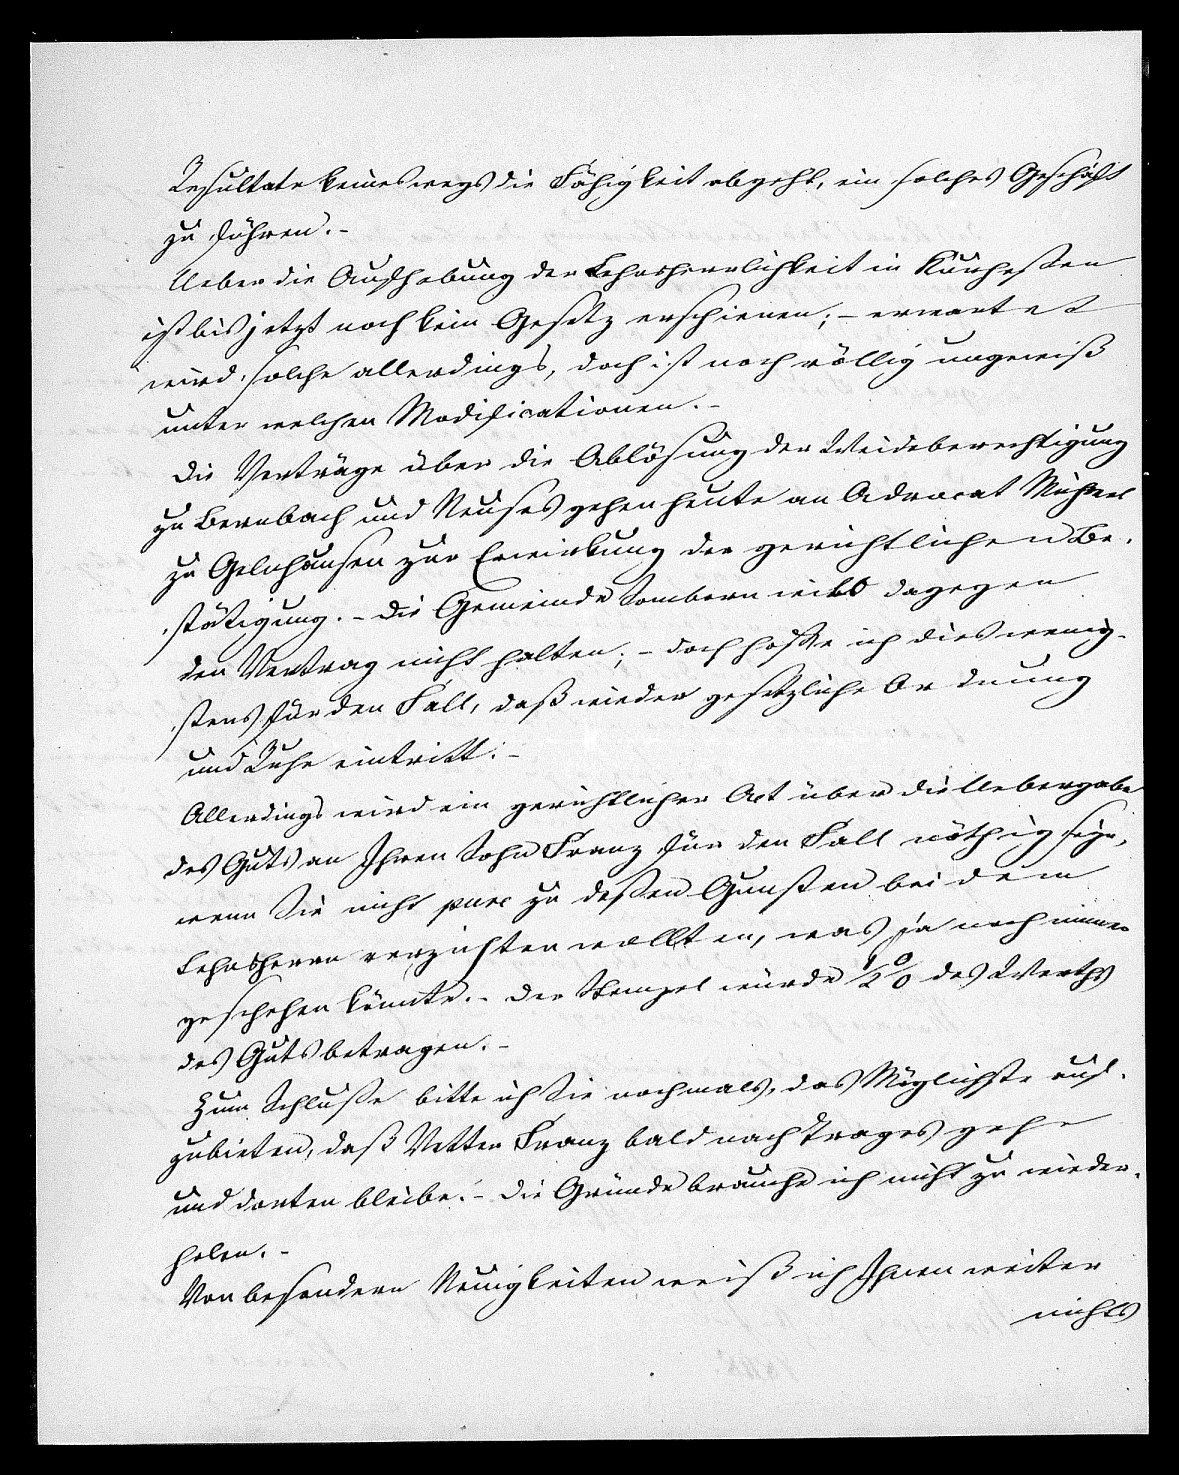 Resultate keineswegs die Fähigkeit abgeht, ein solches Geschäft
zu führen. -
Ueber die Aufhebung der Lehnsherrlichkeit in Kurhessen
ist bis jetzt noch kein Gesetz erschienen; - erwartet
wird solche allerdings, doch ist noch völlig ungewiß
unter welchen Modificationen. -
Die Verträge über die Ablösung der Weideberechtigung
zu Bernbach und Neuses gehen heute an Advocat
zu Gelnhausen zur Erwirkung der gerichtlichen Be-
stätigung. - Die Gemeinde Somborn will dagegen
den Vertrag nicht halten; - doch hoffe ich dies wenig-
stens für den Fall, daß wieder gesetzliche Ordnung
und Ruhe eintritt. -
Allerdings wird ein gerichtlicher Act über die Uebergabe
des Guts an Ihren Sohn Franz für den Fall nöthig seyn,
wenn Sie nicht pure zu deßen Gunsten bei dem
Lehnsherrn verzichten wollten, was ja noch immer
geschehen könnte. - Der Stempel würde 1/2 % des Werths
des Guts betragen. -
Zum Schluße bitte ich Sie nochmals, das Möglichste auf-
zubieten, daß Vetter Franz bald nach Trages gehe
und dorten bleibe. - Die Gründe brauche ich nicht zu wieder-
holen. -
Von besondern Neuigkeiten weiß ich Ihnen weiter
nichts